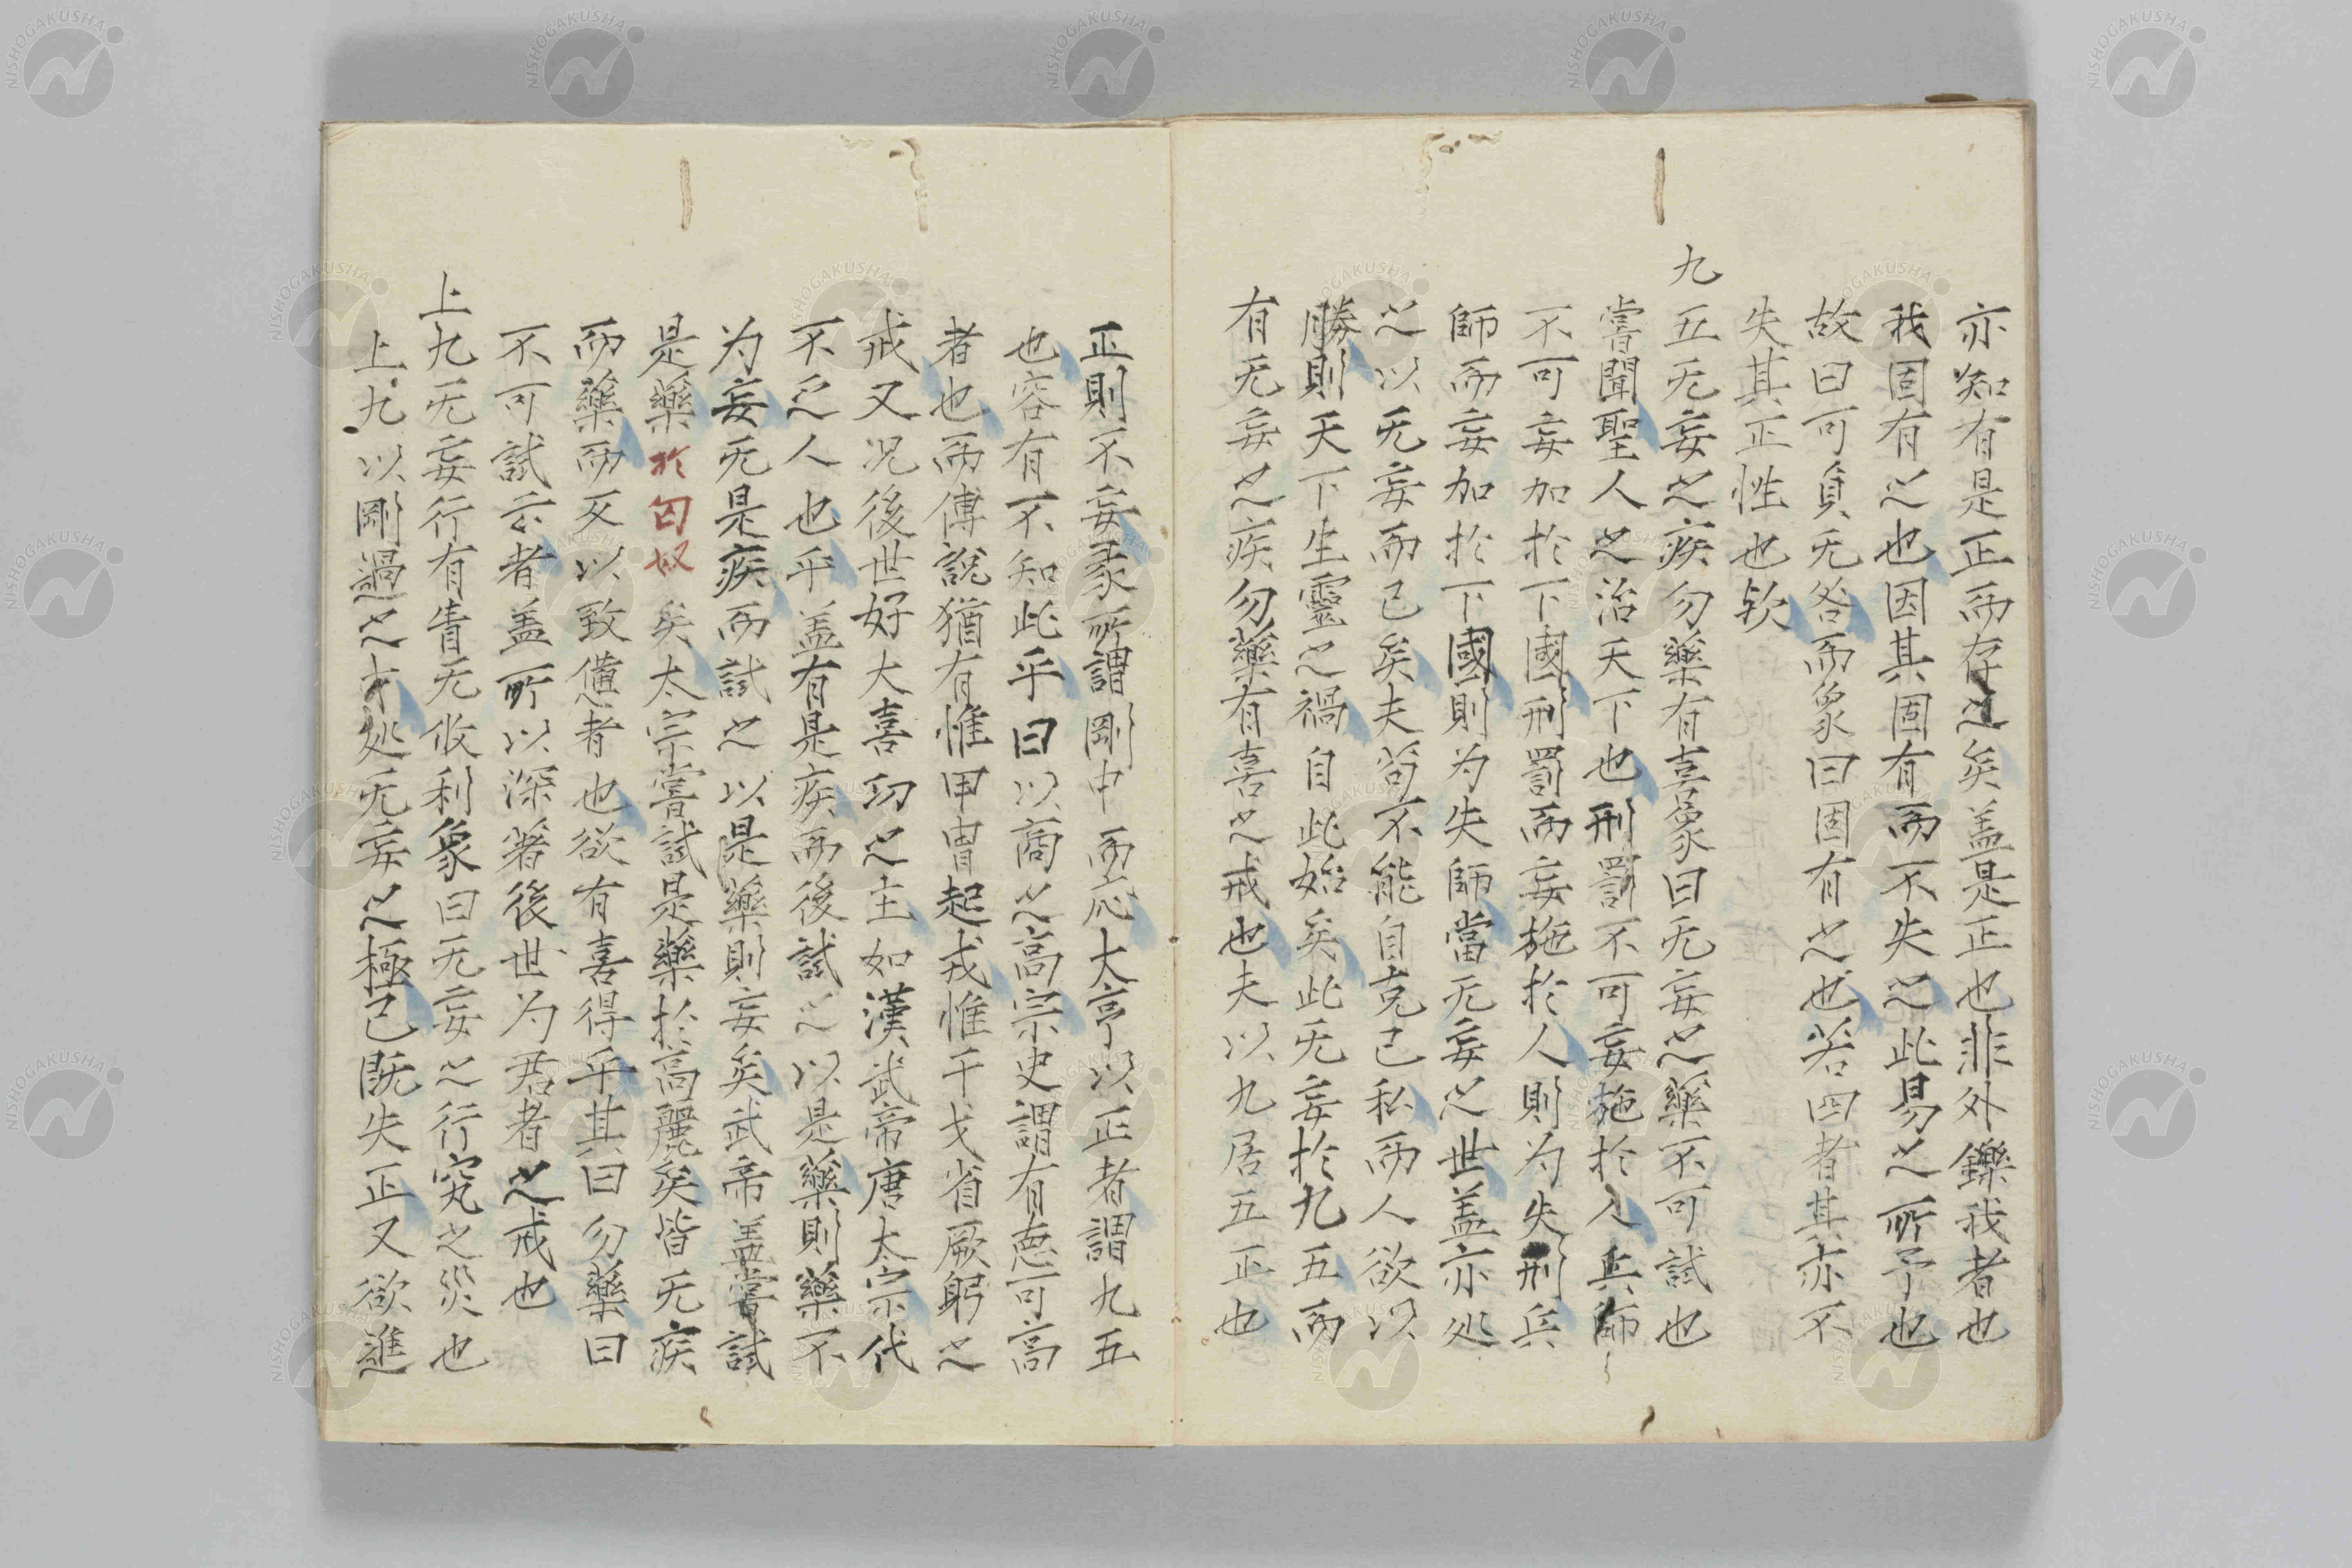 亦知有是正而存之矣盖是正也非外鑠我者也
我固有之也因其固有而不失之此易之所予也
故曰可貞无咎而象曰固有之也若四者其亦不
失其正性也欤
九五无妄之疾勿藥有喜象曰无妄之藥不可試也
嘗聞聖人之治天下也刑罰不可妄施於人兵師
不可妄加於下國刑罰而妄施於人則为失刑兵
師而妄加於下國則为失師當无妄之世盖亦処
之以无妄而已矣夫苟不能自克己私而人欲以
勝則天下生靈之禍自此始矣此无妄於九五而
有无妄之疾勿藥有喜之戒也夫以九居五正也
正則不妄彖所謂剛中而応大亨以正者謂九五
也容有不知此乎曰以商之高宗史謂有悳可高
者也而傅說猶有惟甲冑起戎惟干戈省厥躬之
戒又况後世好大喜功之主如漢武帝唐太宗代
不乏人也乎盖有是疾而後試之以是藥則藥不
为妄无是疾而試之以是藥則妄矣武帝盖嘗試
是藥於匈奴矣太宗嘗試是藥於高麗矣皆无疾
而藥而反以致憊者也欲有喜得乎其曰勿藥曰
不可試云者盖所以深著後世为君者之戒也
上九无妄行有眚无攸利象曰无妄之行窮之災也
上九以剛過之才処无妄之極已既失正又欲進
NISHOGAKUSHA